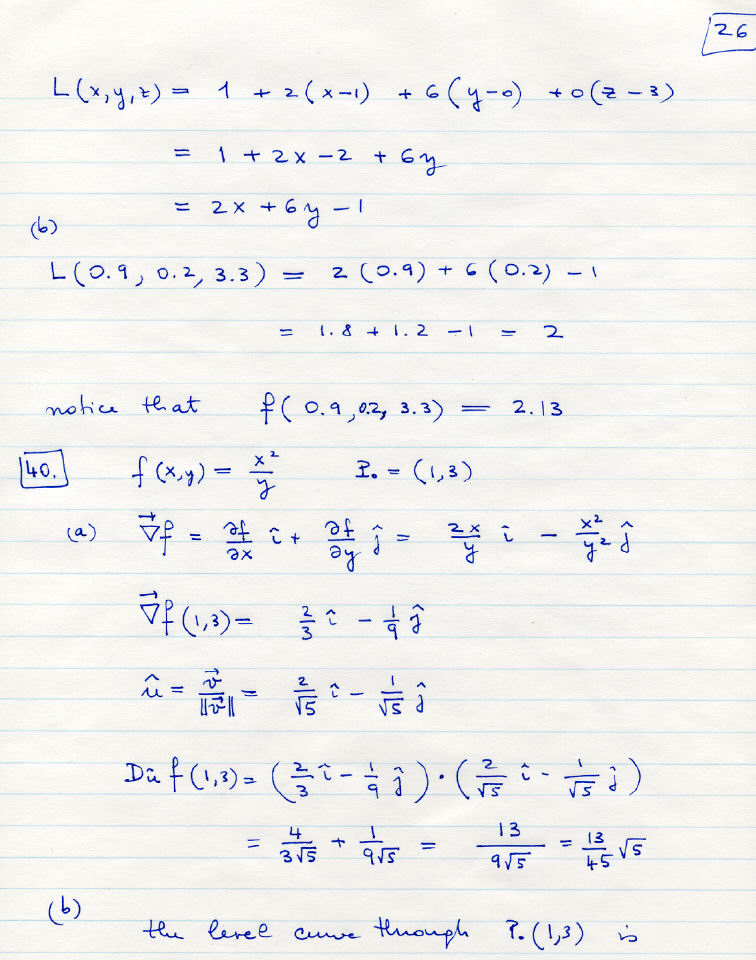 26
L(x,y,z) = 1 + 2(x-1) + 6(y-0) + 0(z-3)
= 1 + 2x - 2 + 6y
= 2x + 6y - 1
(b)
L(0.9, 0.2, 3.3) = 2(0.9) + 6(0.2) - 1
= 1.8 + 1.2 - 1 = 2
notice that f(0.9, 0.2, 3.3) = 2.13
40. f(x,y) = x²/y P₀ = (1,3)
(a) ∇⃗f = ∂f/∂x î + ∂f/∂y ĵ = 2x/y î - x²/y² ĵ
∇⃗f(1,3) = 2/3 î - 1/9 ĵ
û = v⃗/||v⃗|| = 2/√5 î - 1/√5 ĵ
Dû f(1,3) = (2/3 î - 1/9 ĵ) · (2/√5 î - 1/√5 ĵ)
= 4/(3√5) + 1/(9√5) = 13/(9√5) = 13/45 √5
(b)
the level curve through P₀(1,3) is